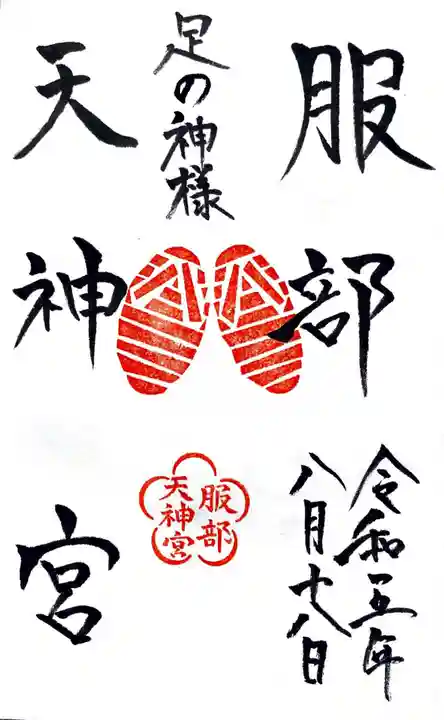 服部
足の神様
天神宮
服部
天神宮
令和五年
八月十八日